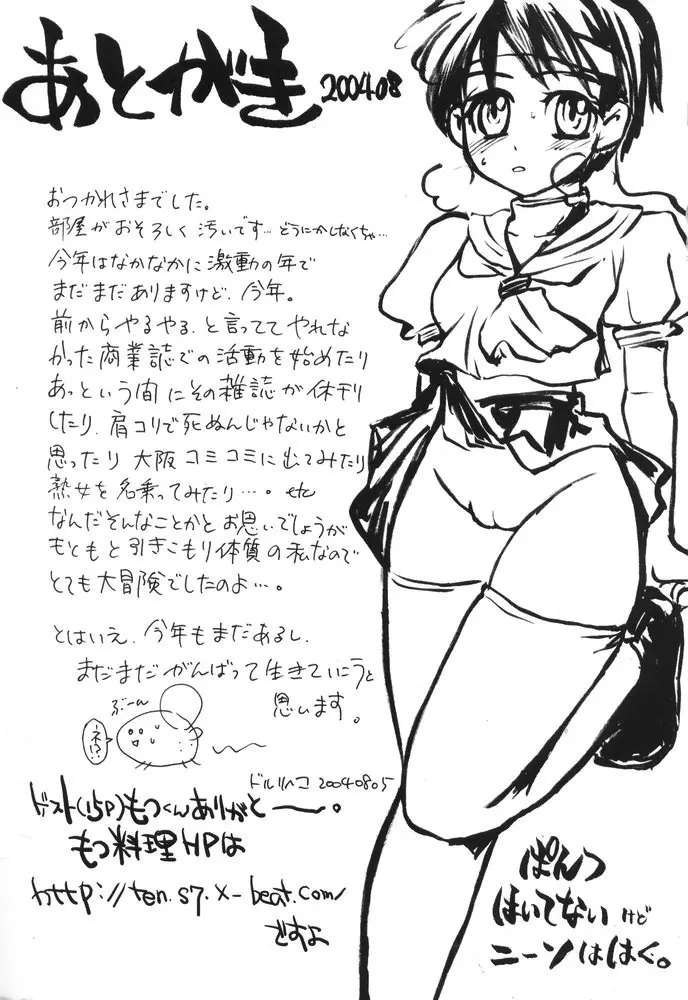 あとがき 2004.08
おつかれさまでした。
部屋がおそろしく汚いです…どうにかしなくちゃ…
今年はなかなかに激動の年で
まだまだありますけど、今年。
前からやるやる、と言ってて やれな
かった商業誌での活動を始めたり
あっという間にその雑誌が休刊
したり、肩コリで死ぬんじゃないかと
思ったり 大阪コミコミに出てみたり
熟女を名乗ってみたり…。etc
なんだそんなことかとお思いでしょうが
もともと引きこもり体質の私なので
とても大冒険でしたのよ…。
とはいえ、今年もまだあるし、
まだまだがんばって生きていこうと
思います。
ぶーん
ネ!?
ドルリヘコ 20040805
ゲスト(15P)もつくんありがとーー。
もつ料理HPは
http://ten.s7.x-beat.com/
ですよ
ぱんつ
はいてないけど
ニーソははく。